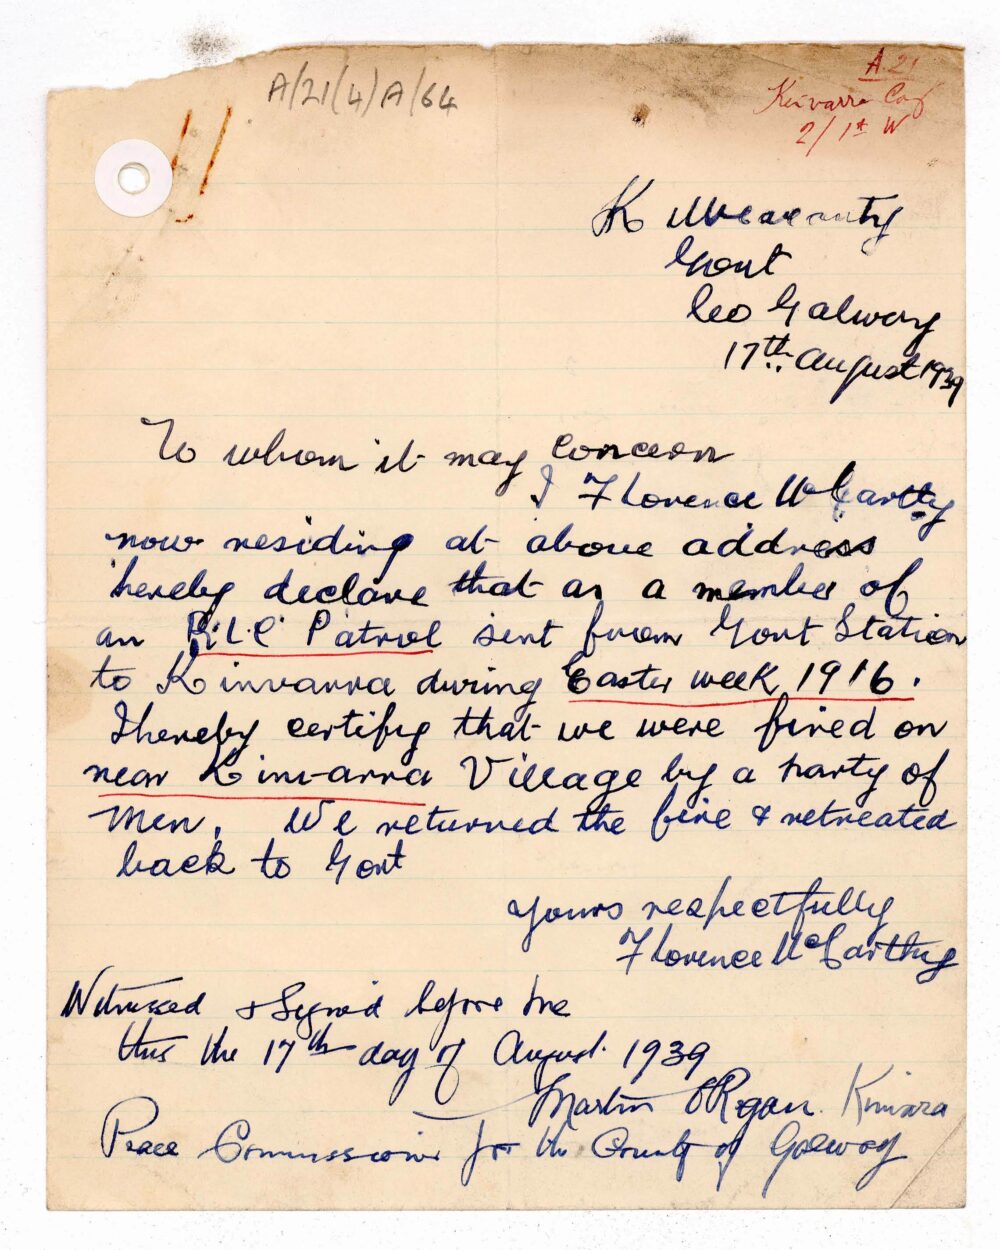 A/21(4)A/64
A. 21
Kinvarra Coy
2/1st W
Gort
Co Galway
17th August 1939
To whom it may concern
I Florence McCarthy
now residing at above address
hereby declare that as a member of
an R.I.C. Patrol sent from Gort Station
to Kinvarra during Easter week 1916.
I hereby certify that we were fired on
near Kinvarra Village by a party of
Men. We returned the fire & retreated
back to Gort
Yours respectfully
Florence McCarthy
Witnessed & Signed before me
this the 17th day of August 1939
Martin O'Regan. Kinvara
Peace Commissioner for the County of Galway